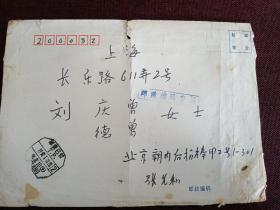 200032
上海
长乐路611弄2号
刘庆曾 女士
德曾
北京朝内后拐棒甲2号1-301
张允和
邮政编码